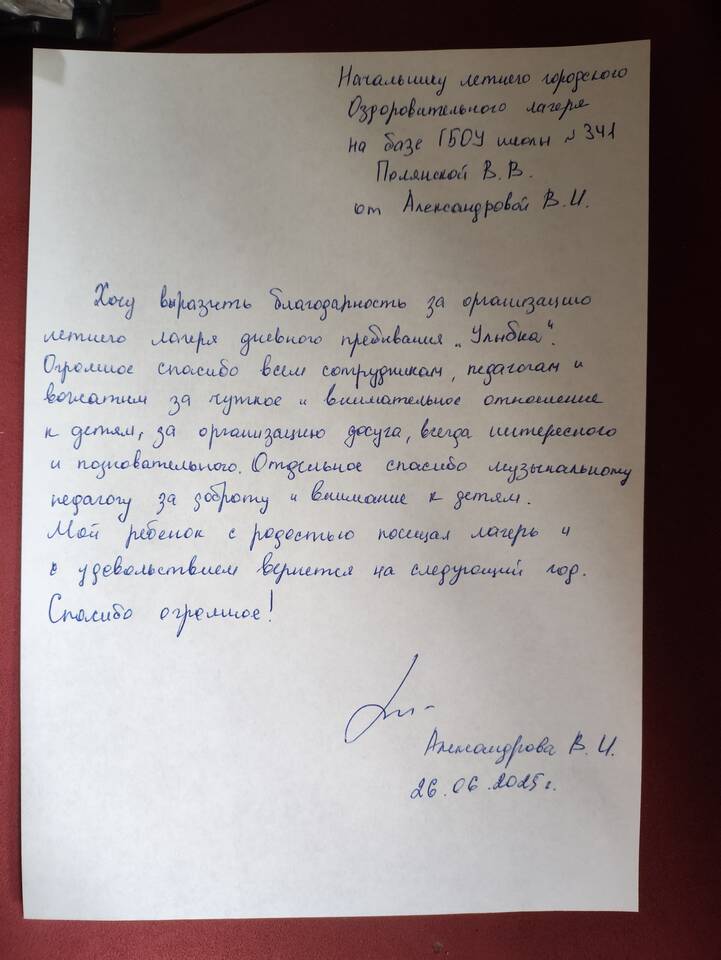 Начальнику летнего городского
Оздоровительного лагеря
на базе ГБОУ школы №341
Полянской В.В.
от Александровой В.И.
Хочу выразить благодарность за организацию
летнего лагеря дневного пребивания „Улыбка“.
Огромное спасибо всем сотрудникам, педагогам и
вожатым за чуткое и внимательное отношение
к детям, за организацию досуга, всегда интересного
и позновательного. Отдельное спасибо музыкальному
педагогу за доброту и внимание к детям.
Мой ребенок с радостью посещал лагерь и
с удовольствием вернется на следующий год.
Спасибо огромное!
Александрова В.И.
26.06.2025г.